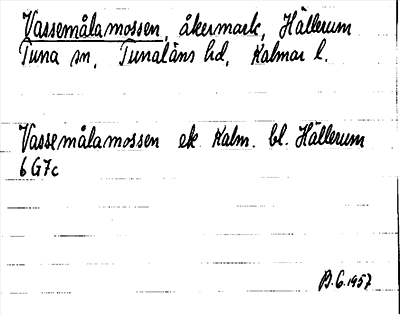 Vassemålamossen, åkermark, Hällerum
Tuna sn, Tunaläns hd, Kalmar l.
Vassemålamossen ek Kalm. bl. Hällerum
6 G7c
B.G. 1957